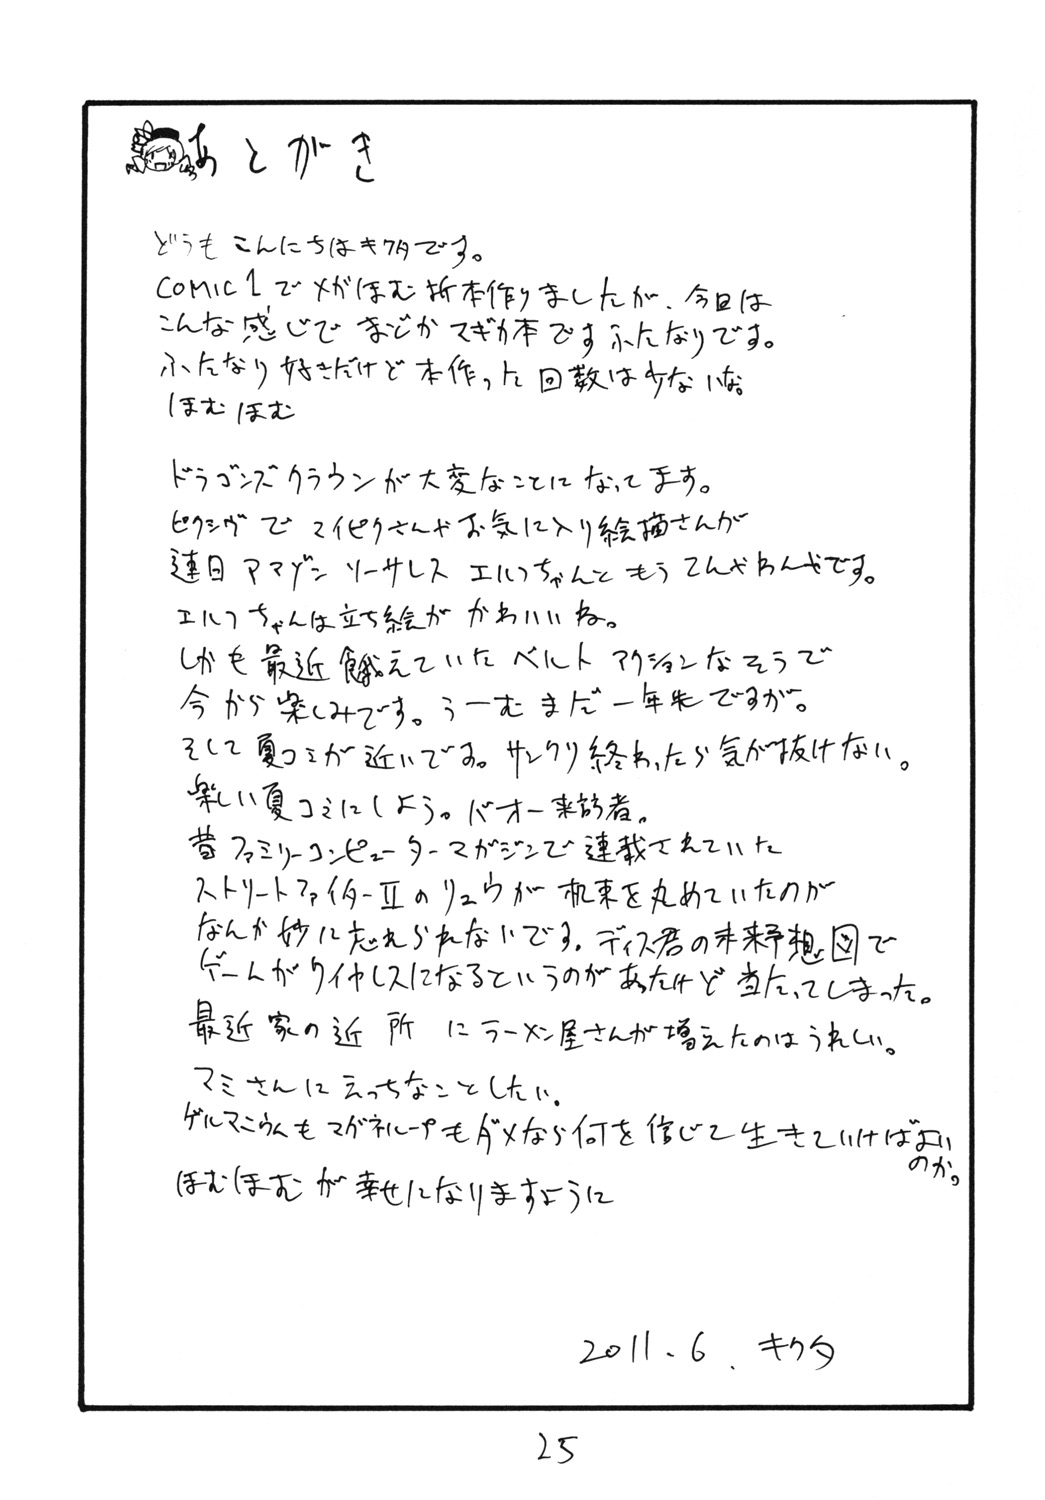 あとがき
どうもこんにちはキクタです。
COMIC1でメガほむ折本作りましたが、今日は
こんな感じでまどかマギカ本ですふたなりです。
ふたなり好きだけど本作った回数は少ないな。
ほむほむ
ドラゴンズクラウンが大変なことになってます。
ピクシヴでマイピクさんやお気に入り絵描さんが
連日アマゾンソーサレスエルフちゃんともうてんやわんやです。
エルフちゃんは立ち絵がかわいいね。
しかも最近餓えていたベルトアクションなそうで
今から楽しみです。うーむまだ一年先ですが。
そして夏コミが近いです。サンクリ終わったら気が抜けない。
楽しい夏コミにしよう。バオー来訪者。
昔ファミリーコンピューターマガジンで連載されていた
ストリートファイターIIのリュウが札束を丸めていたのが
なんか妙に忘れられないです。ディス君の未来予想図で
ゲームがワイヤレスになるというのがあったけど当たってしまった。
最近家の近所にラーメン屋さんが増えたのはうれしい。
マミさんにえっちなことしたい。
ゲルマニウムもマグネループもダメなら何を信じて生きていけばよい
のか。
ほむほむが幸せになりますように
2011.6.キクタ
25